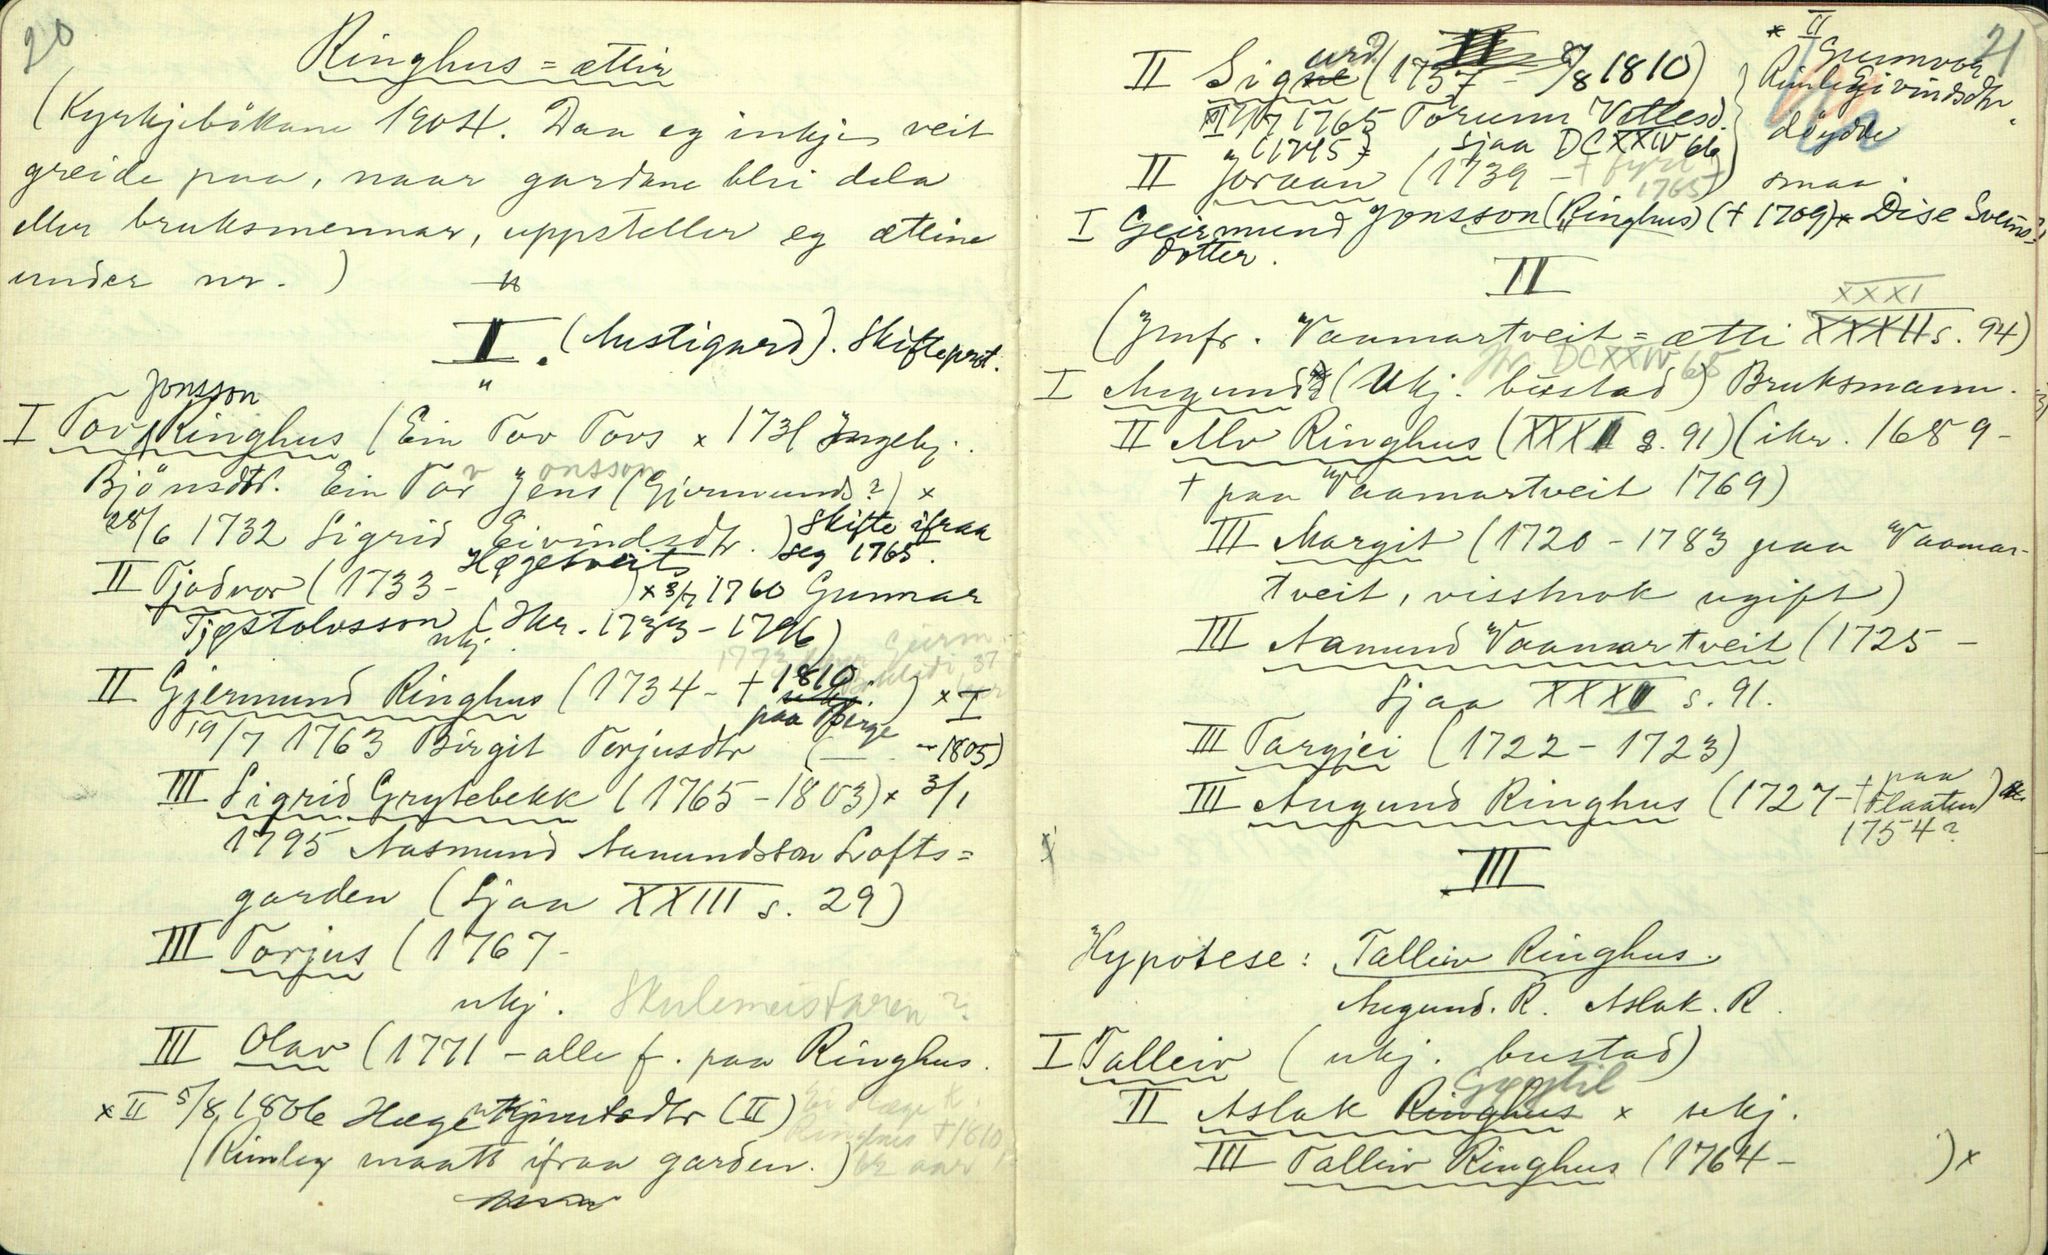 20
Ringhus = ættir
(Kyrkjebökane 1904. Daa eg inkje veit
greide paa, naar gardane bli dela
eller bruksmennar, uppsteller eg ættine
under nr. )
I. (Austigard). Skifteprot.
Jonsson
I Tov Ringhus (Ein Tov Tovs x 1731 Ingebj.
Bjönsdtr. Ein Tov Jens (Gjermunds?) x
onsson
28/6 1732 Sigrid Eivindsdtr.) Skifte ifraa
seg 1765.
Hægetveit
II Tjodvor (1733- ) x 3/7 1760 Gunnar
Tjøstolvsson (Hkr. 1733-1796)
ukj.
II Gjermund Ringhus (1734- + 1810 ) x I
paa Berge
19/7 1763 Birgit Torjusdtr ( - 1805)
III Sigrid Grytebekk (1765-1803) x 3/1
1795 Aasmund Aamundson Lofts=
garden (Sjaa XXIII s. 29)
III Torjus (1767-
ukj. Skulemeistaren?
III Olav (1771 - alle f. paa Ringhus.
x II 5/8 1806 Hæge Kjnutsdtr (II)
Ringhus + 1810
62 aar
(Rimleg maatt ifraa garden.)
21
II Sigurd (1757 - 8/8 1810)
1765 Torunn Vetlesd.
(1745) Sjaa DCXXIV 66
II Joraan (1739 - + fyre 1765)
x II
Gunnvor
Rimleg Eivindsdtr.
döydde
smaa.
I Geirmund Jonsson (Ringhus) (+ 1709) x Dise Sveins=
dotter.
II
XXXI
(Jmfr. Vaamartveit = ætti XXXII s. 94)
DCXXIV 65
I Augund (Ukj. bustad) Bruksmann.
II Alv Ringhus (XXXI s. 91) (ikr. 1689-
+ paa Vaamartveit 1769)
III Margit (1720-1783 paa Vaamar-
tveit, visstnok ugift)
III Aamund Vaamartveit (1725-
Sjaa XXXI s. 91.
III Targjei (1722-1723)
III Augund Ringhus (1727- + paa
Flaatin)
1754?
III
Hypotese: Talleiv Ringhus.
Augund. R. Aslak. R.
I Talleiv (ukj. bustad)
Gygstil
II Aslak Ringhus x ukj.
III Talleiv Ringhus (1764- ) x